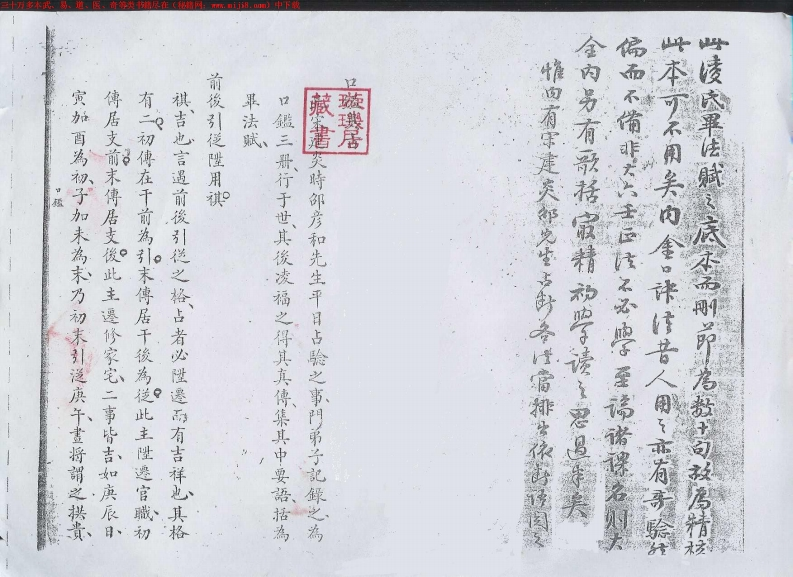 三十万多本武、易、道、医、奇等类书籍尽在（秘籍网：www.miji8.com）中下载
此凌氏畢法賦之底本而刪節為數十句故為精核
此本可不用矣內金口訣法昔人用之亦有奇驗然
偏而不備非大六壬正法不必學至論諸課名則大
全內另有歌括最精初學讀之思過半矣
惟內有宋建炎邵先生占斷各法當排出依
口鑑
璇璣居藏書
宋建炎時邵彥和先生平日占驗之事門弟子記錄之為
口鑑三冊行于世其後凌福之得其真傳集其中要語括為
畢法賦
前後引從陞用祺
祺吉也言遇前後引從之格占者必陞遷而有吉祥也其格
有二初傳在干前為引末傳居干後為從此主陞遷官職初
傳居支前末傳居支後此主遷修家宅二事皆吉如庚辰日
寅加酉為初子加未為末乃初末引從庚午晝將謂之拱貴
口鑑